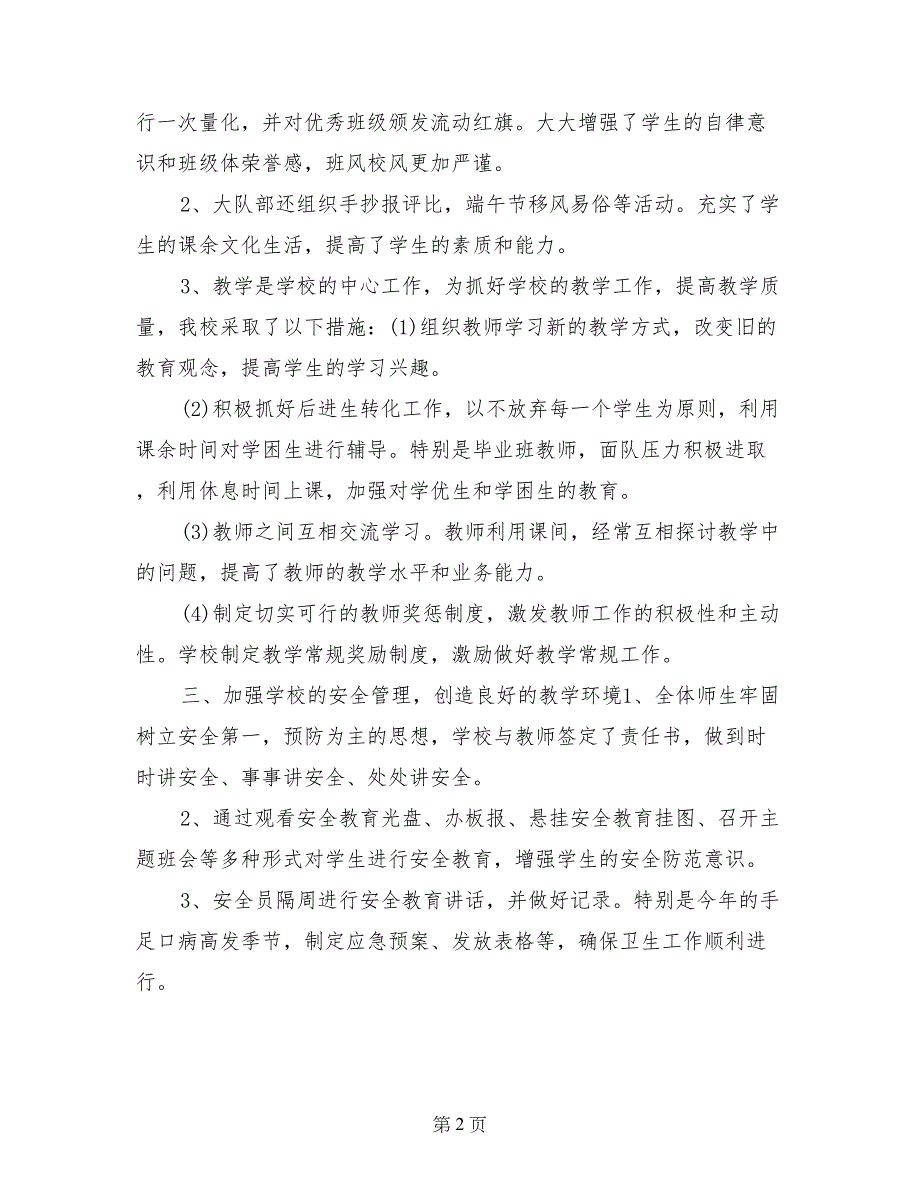 行一次量化，并对优秀班级颁发流动红旗。大大增强了学生的自律意
识和班级体荣誉感，班风校风更加严谨。
2、大队部还组织手抄报评比，端午节移风易俗等活动。充实了学
生的课余文化生活，提高了学生的素质和能力。
3、教学是学校的中心工作，为抓好学校的教学工作，提高教学质
量，我校采取了以下措施：(1)组织教师学习新的教学方式，改变旧的
教育观念，提高学生的学习兴趣。
(2)积极抓好后进生转化工作，以不放弃每一个学生为原则，利用
课余时间对学困生进行辅导。特别是毕业班教师，面队压力积极进取
，利用休息时间上课，加强对学优生和学困生的教育。
(3)教师之间互相交流学习。教师利用课间，经常互相探讨教学中
的问题，提高了教师的教学水平和业务能力。
(4)制定切实可行的教师奖惩制度，激发教师工作的积极性和主动
性。学校制定教学常规奖励制度，激励做好教学常规工作。
三、加强学校的安全管理，创造良好的教学环境1、全体师生牢固
树立安全第一，预防为主的思想，学校与教师签定了责任书，做到时
时讲安全、事事讲安全、处处讲安全。
2、通过观看安全教育光盘、办板报、悬挂安全教育挂图、召开主
题班会等多种形式对学生进行安全教育，增强学生的安全防范意识。
3、安全员隔周进行安全教育讲话，并做好记录。特别是今年的手
足口病高发季节，制定应急预案、发放表格等，确保卫生工作顺利进
行。
第 2 页